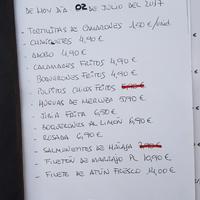 DE HOY DÍA 02 DE JULIO DEL 2017
- TORTILLITAS DE CAMARONES 1'50 €/Unid.
- CHOQUITOS 4,90 €
- ADOBO 4,90 €
- CALAMARES FRITOS 4,90 €
- BOQUERONES FRITOS 4,90 €
- PULPITOS CHICOS FRITOS 5,90 €
- HUEVAS DE MERLUZA 5,90 €
- JIBIA FRITA 6,50 €
- BOQUERONES AL LIMÓN 6,90 €
- ROSADA 6,90 €
- SALMONETITOS DE MÁLAGA 7,90 €
- FILETÓN DE MARRAJO PL 10,90 €
- FILETE DE ATÚN FRESCO 14,00 €